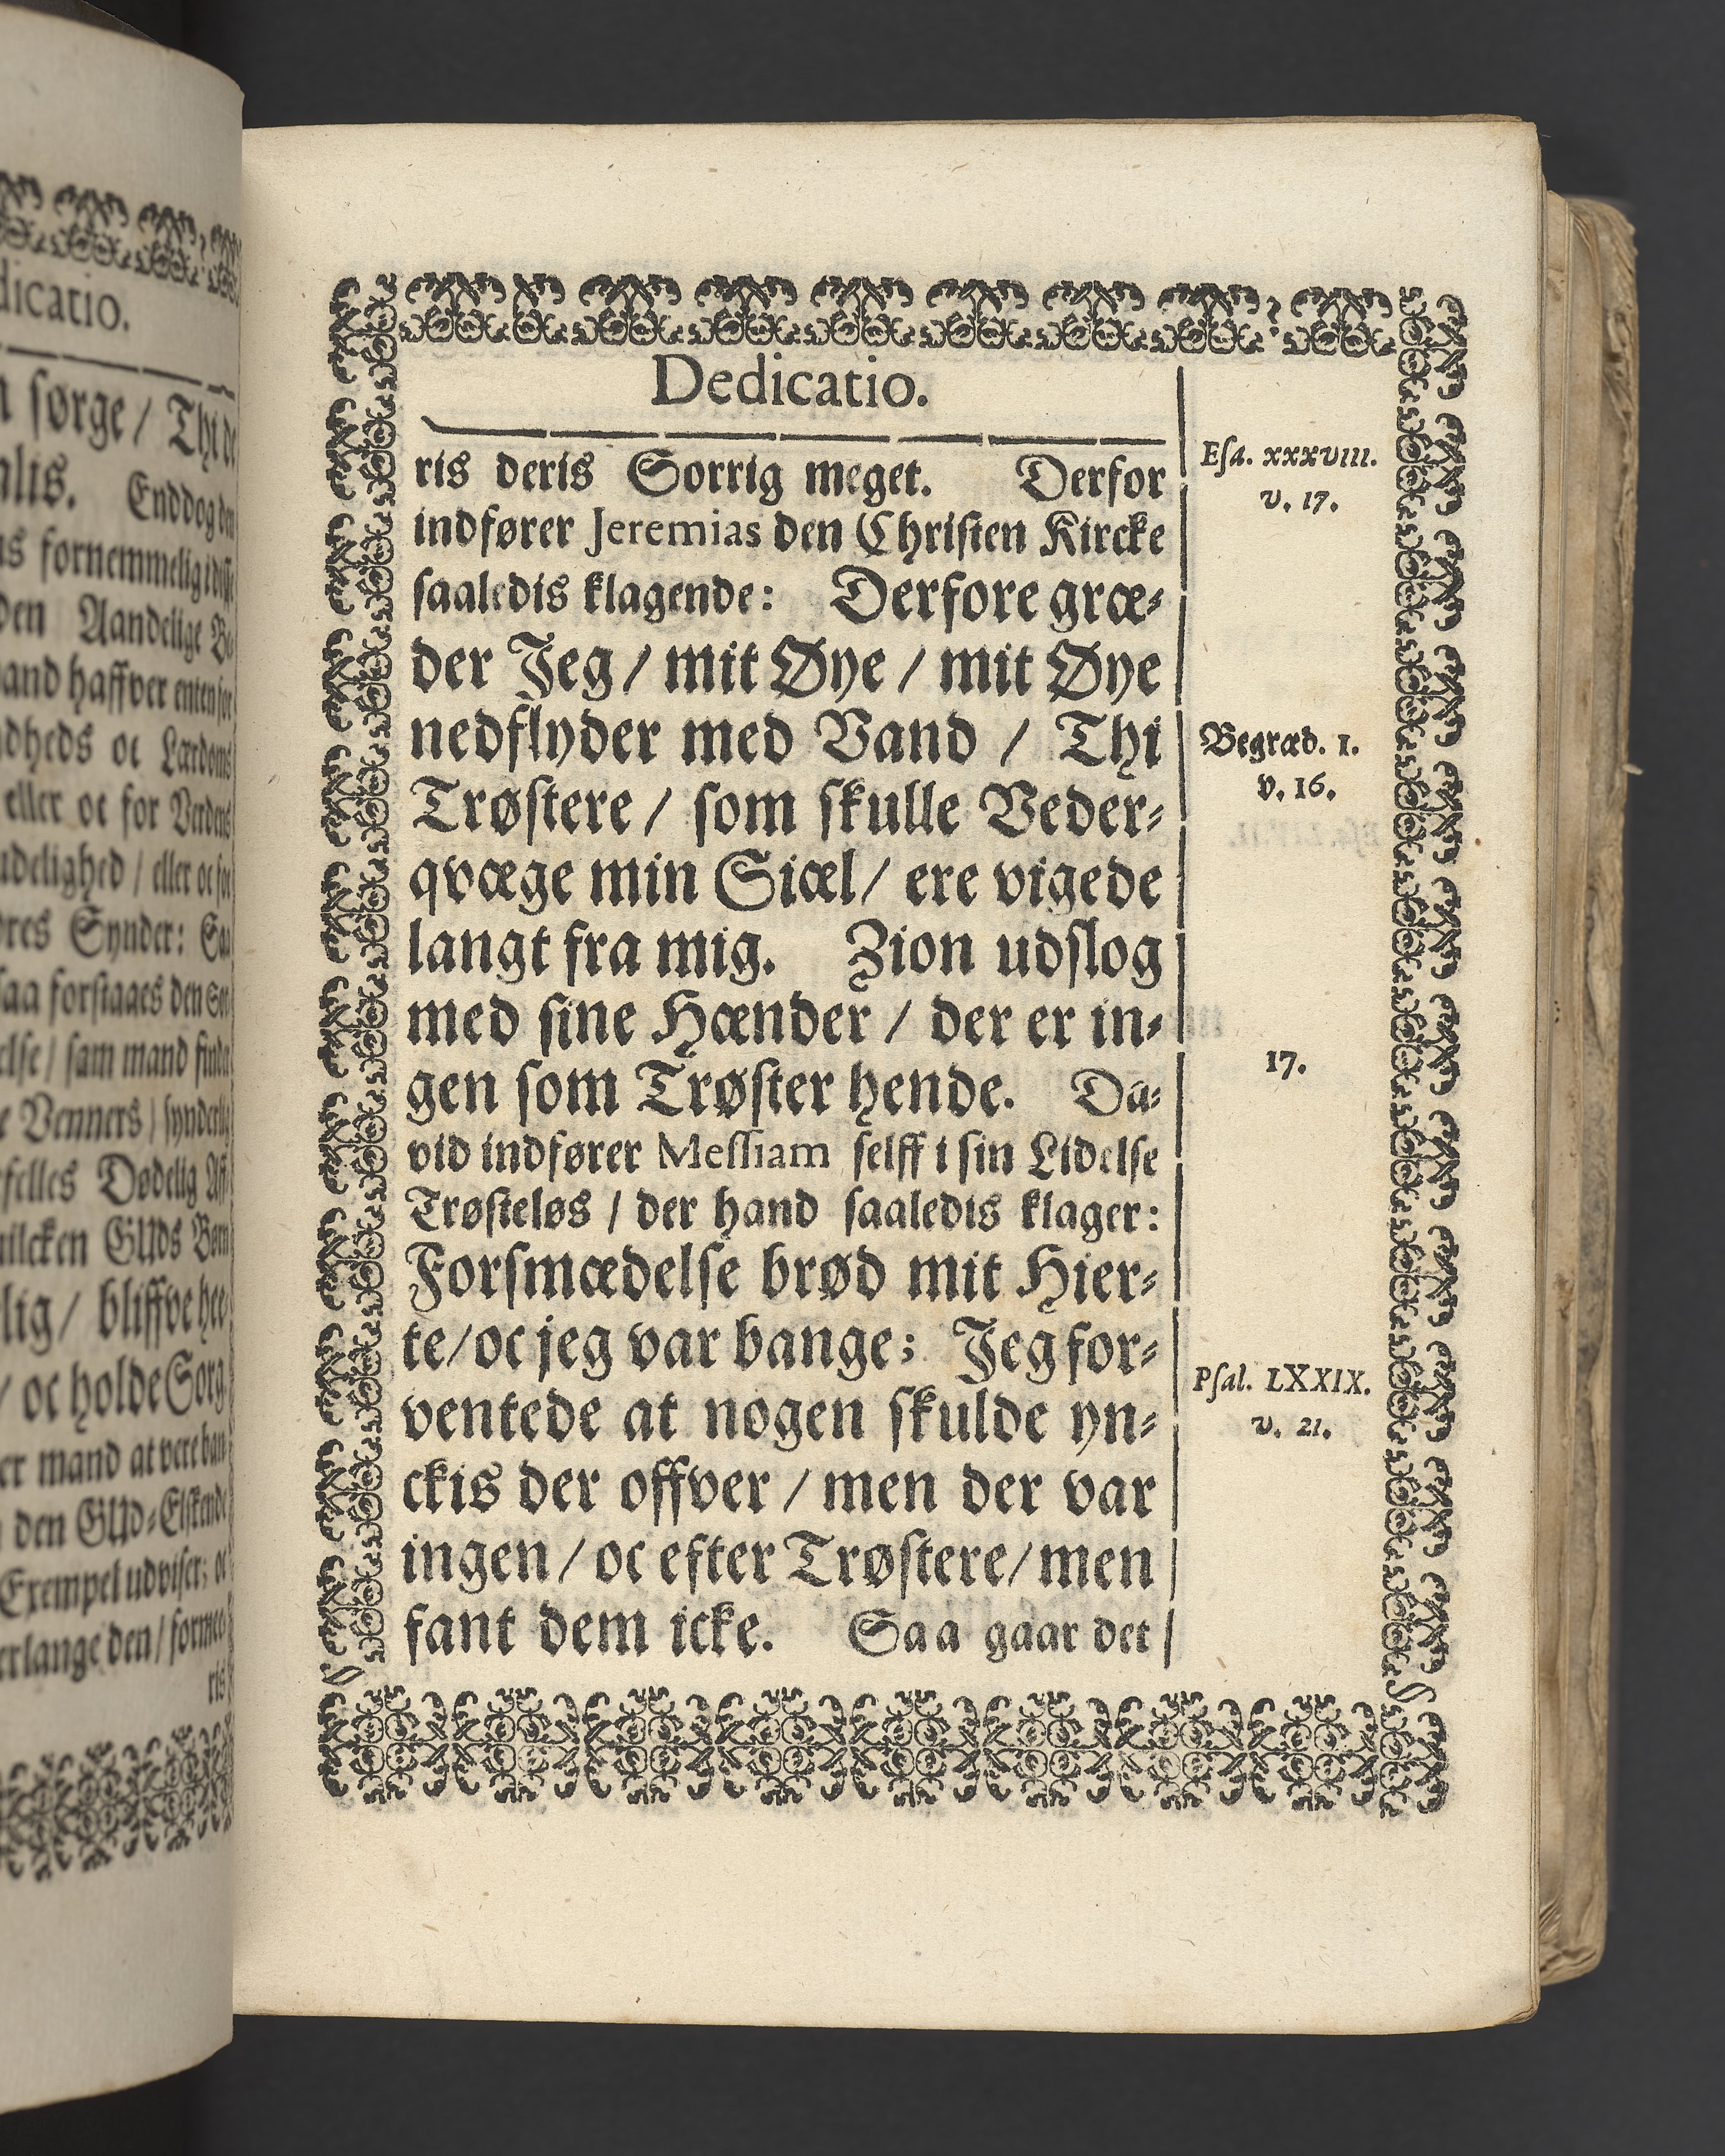 dicatio.
sørge / Thi
alis. Enddog
fornemmelig
den Aandelige
haffver
dheds oc Lærdoms
eller oc for Verdens
udelighed / eller oc for
dres Synder:
saa forstaaes den
else / sam mand
Venners /
felles Dødelig
GUds Børn
lig / bliffve
/ oc holde Sorg
er mand at vere
den GUD-Elskende
Exempel udviser; oc
erlange den /
ris
Dedicatio.
ris deris Sorrig meget. Derfor
indfører Jeremias den Christen Kircke
saaledis klagende: Derfore græ-
der Jeg / mit Øye / mit Øye
nedflyder med Vand / Thi
Trøstere / som skulle Veder-
qvæge min Siæl / ere vigede
langt fra mig. Zion udslog
med sine Hænder / der er in-
gen som Trøster hende. Da-
vid indfører Messiam selff i sin Lidelse
Trøsteløs / der hand saaledis klager:
Forsmædelse brød mit Hier-
te / oc jeg var bange; Jeg for-
ventede at nogen skulde yn-
ckis der offver / men der var
ingen / oc efter Trøstere / men
fant dem icke. Saa gaar det
Esa. XXXVIII.
v. 17.
Begræd. 1.
v. 16.
17.
Psal. LXXIX.
v. 21.